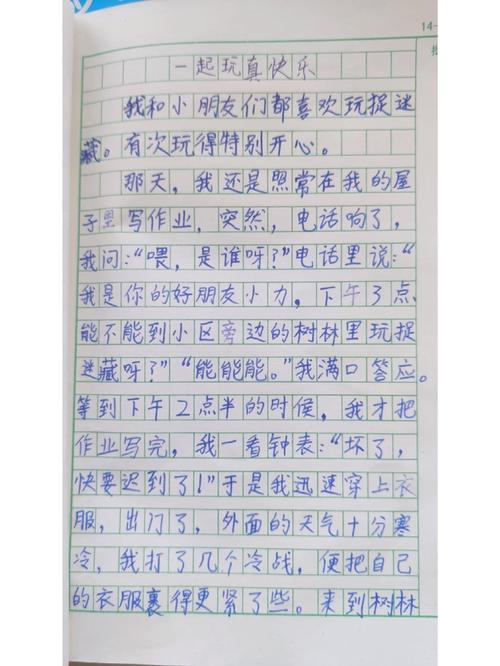 14-
一起玩真快乐
我和小朋友们都喜欢玩捉迷
藏。有次玩得特别开心。
那天，我还是照常在我的屋
子里写作业，突然，电话响了，
我问：“喂，是谁呀？”电话里说：“
我是你的好朋友小力，下午3点
能不能到小区旁边的树林里玩捉
迷藏呀？”“能能能。”我满口答应。
等到下午2点半的时候，我才把
作业写完，我一看钟表：“坏了，
快要迟到了！”于是我迅速穿上衣
服，出门了，外面的天气十分寒
冷，我打了几个冷战，便把自己
的衣服裹得更紧了些。来到树林